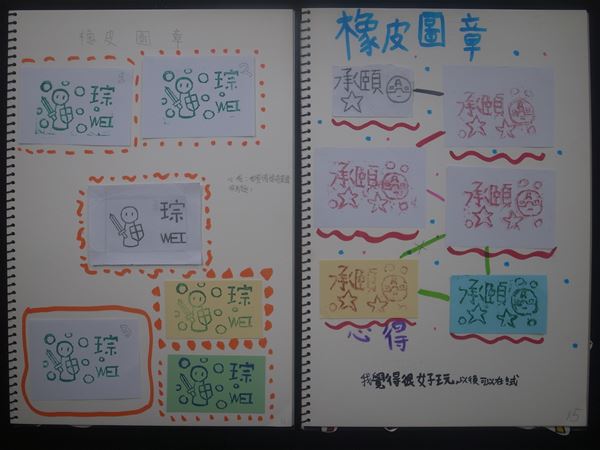 橡皮圖章
琮
WEI
琮
WEI
琮
WEI
琮
WEI
琮
WEI
琮
WEI
橡皮圖章
承頤
承頤
承頤
承頤
承頤
承頤
心得
我覺得很好玩,以後可以在試
15